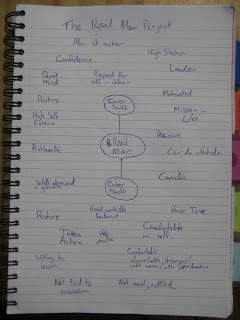 The Real Man Project
Man of action
High Status
Confidence
Leader
Quiet Mind
Respect for self + others
Motivated
Positive
Inner Stuff
Mission in Life
High Self Esteem
Decisive
Real Man
Authentic
Can do attitude
Capable
Outer Stuff
Well
Good work/life balance
Voice Tone
Posture
Takes Action
Helps people
Comfortable in self
Willing to learn
Comfortable
Not tied to possessions
Not easily rattled